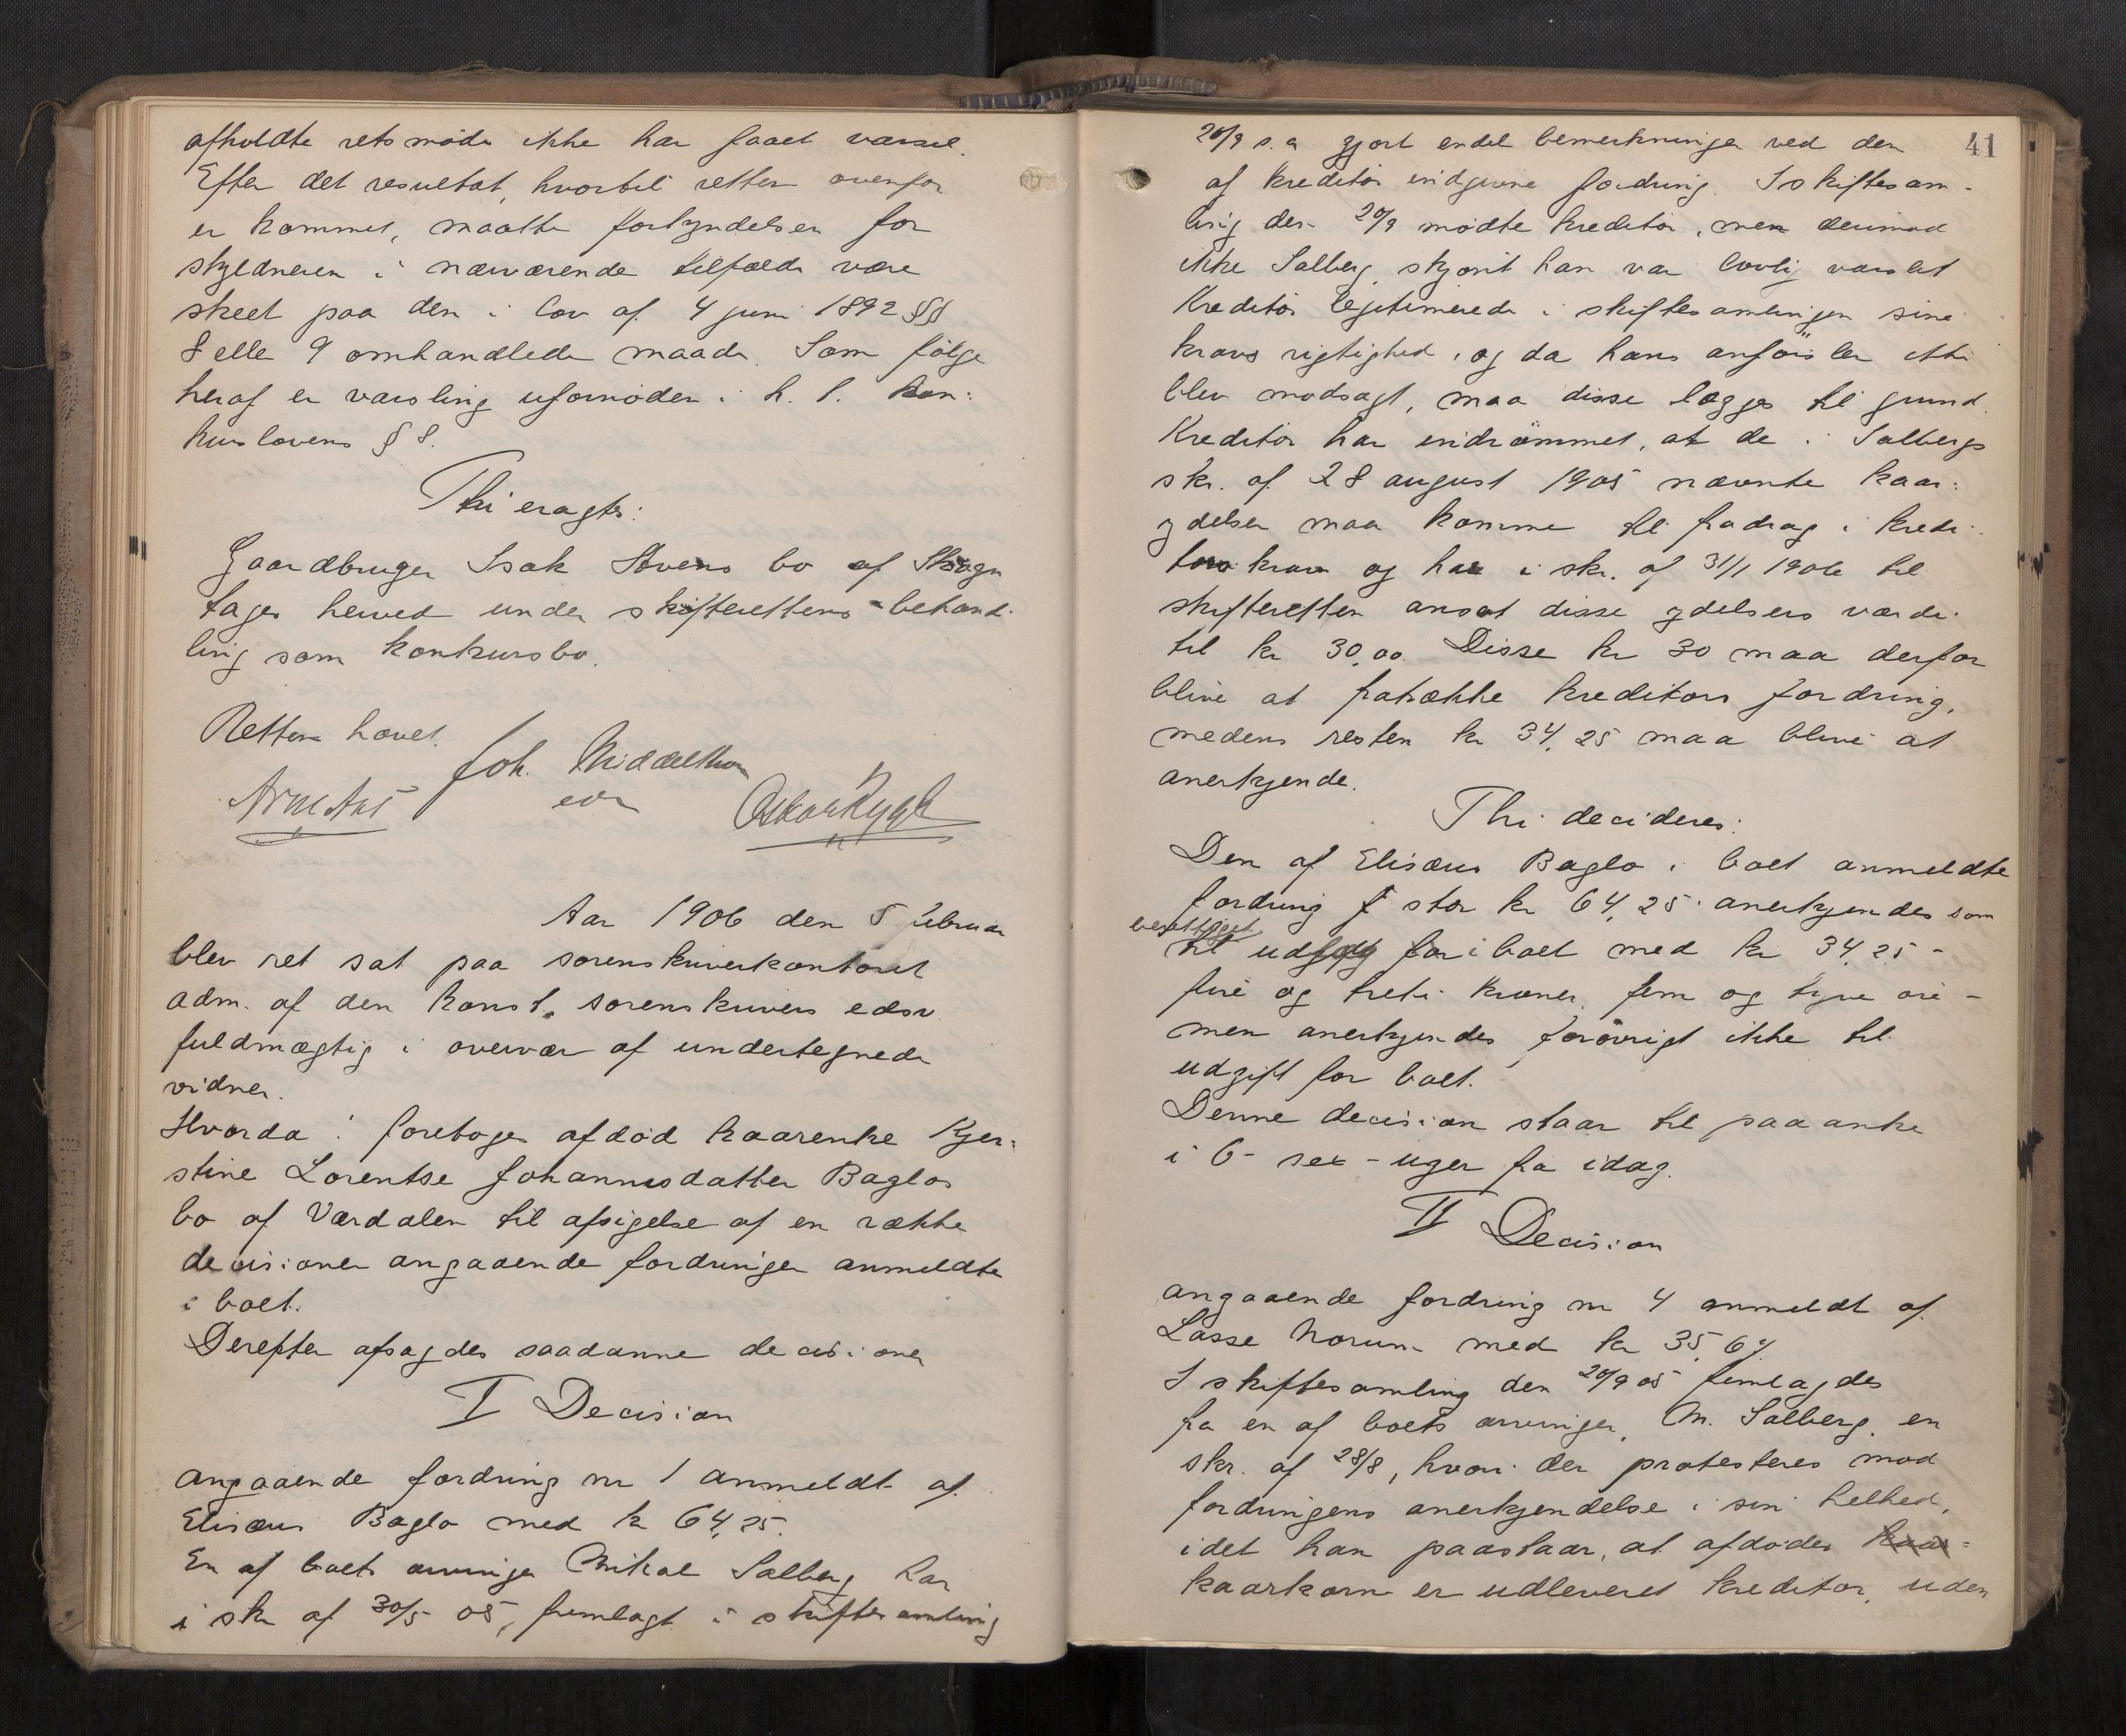 afholdte retsmøde ikke har faaet varsel.
Efter det resultat, hvortil retten ovenfor
er kommet, maatte forkyndelsen for
skyldneren i nærværende tilfælde være
skeet paa den i lov af 4 juni 1892 §§
8 eller 9 omhandlede maade. Som følge
heraf er varsling ufornøden i h. t. kon:
kurslovens § 8.
Thi eragtes:
Gaardbruger Isak Stvens bo af Skogn
tages herved under skifterettens behand:
ling som konkursbo.
Retten hævet.
Joh. Middelthon
edv
Aar 1906 den 5 februar
blev ret sat paa sorenskriverkontoret
adm. af den konst. sorenskrivers edsv.
fuldmægtig i overvær af undertegnede
vidner.
Hvorda: foretoges afdød kaarenke Kjer:
stine Lorentse Johannesdatter Baglos
bo af Værdalen til afsigelse af en række
decisioner angaaende fordringer anmeldte
i boet.
Derefter afsagdes saadanne decisioner
I Decision
angaaende fordring nr 1 anmeldt af
Elisæus Baglo med kr 64,25.
En af boets arvinger Mikal Salberg har
i skr af 30/5 05, fremlagt i skiftesamling
41
20/9 s.a gjort endel bemerkninger ved den
af kreditor indgivne fordring. I skiftesam-
ling den 20/9 mødte kreditor, men derimod
ikke Salberg, skjønt han var lovlig varslet
Kreditor legitimerede i skiftesamlingen sine
kravs rigtighed, og da hans anførsler ikke
blev modsagt, maa disse lægges til grund.
Kreditor har indrømmet, at de i Salbergs
skr. af 28 august 1905 nævnte kaar:
ydelser maa komme til fradrag i kredi:
tors krav og har i skr. af 31/1 1906 til
skifteretten ansat disse ydelsers værdi
til kr 30,00. Disse kr 30 maa derfor
blive at fratrække kreditors fordring,
medens resten kr 34,25 maa blive at
anerkjende.
Thi decideres:
Den af Elisæus Baglo i boet anmeldte
fordring stor kr 64,25 anerkjendes som
berettiget
til udlæg for i boet med kr 34,25 -
fire og treti kroner, fem og tyve øre -
men anerkjendes forøvrigt ikke til
udgift for boet.
Denne decision staar til paaanke
i 6 - sex - uger fra idag.
II Decision
angaaende fordring nr 4 anmeldt af
Lasse Norum med kr 35,67.
I skiftesamling den 20/9 05 fremlagdes
fra en af boets arvinger, M. Salberg, en
skr. af 28/8, hvori der protesteres mod
fordringens anerkjendelse i sin helhed,
idet han paastaar, at afdødes kaar-
kaarkorn er udleveret kreditor, uden